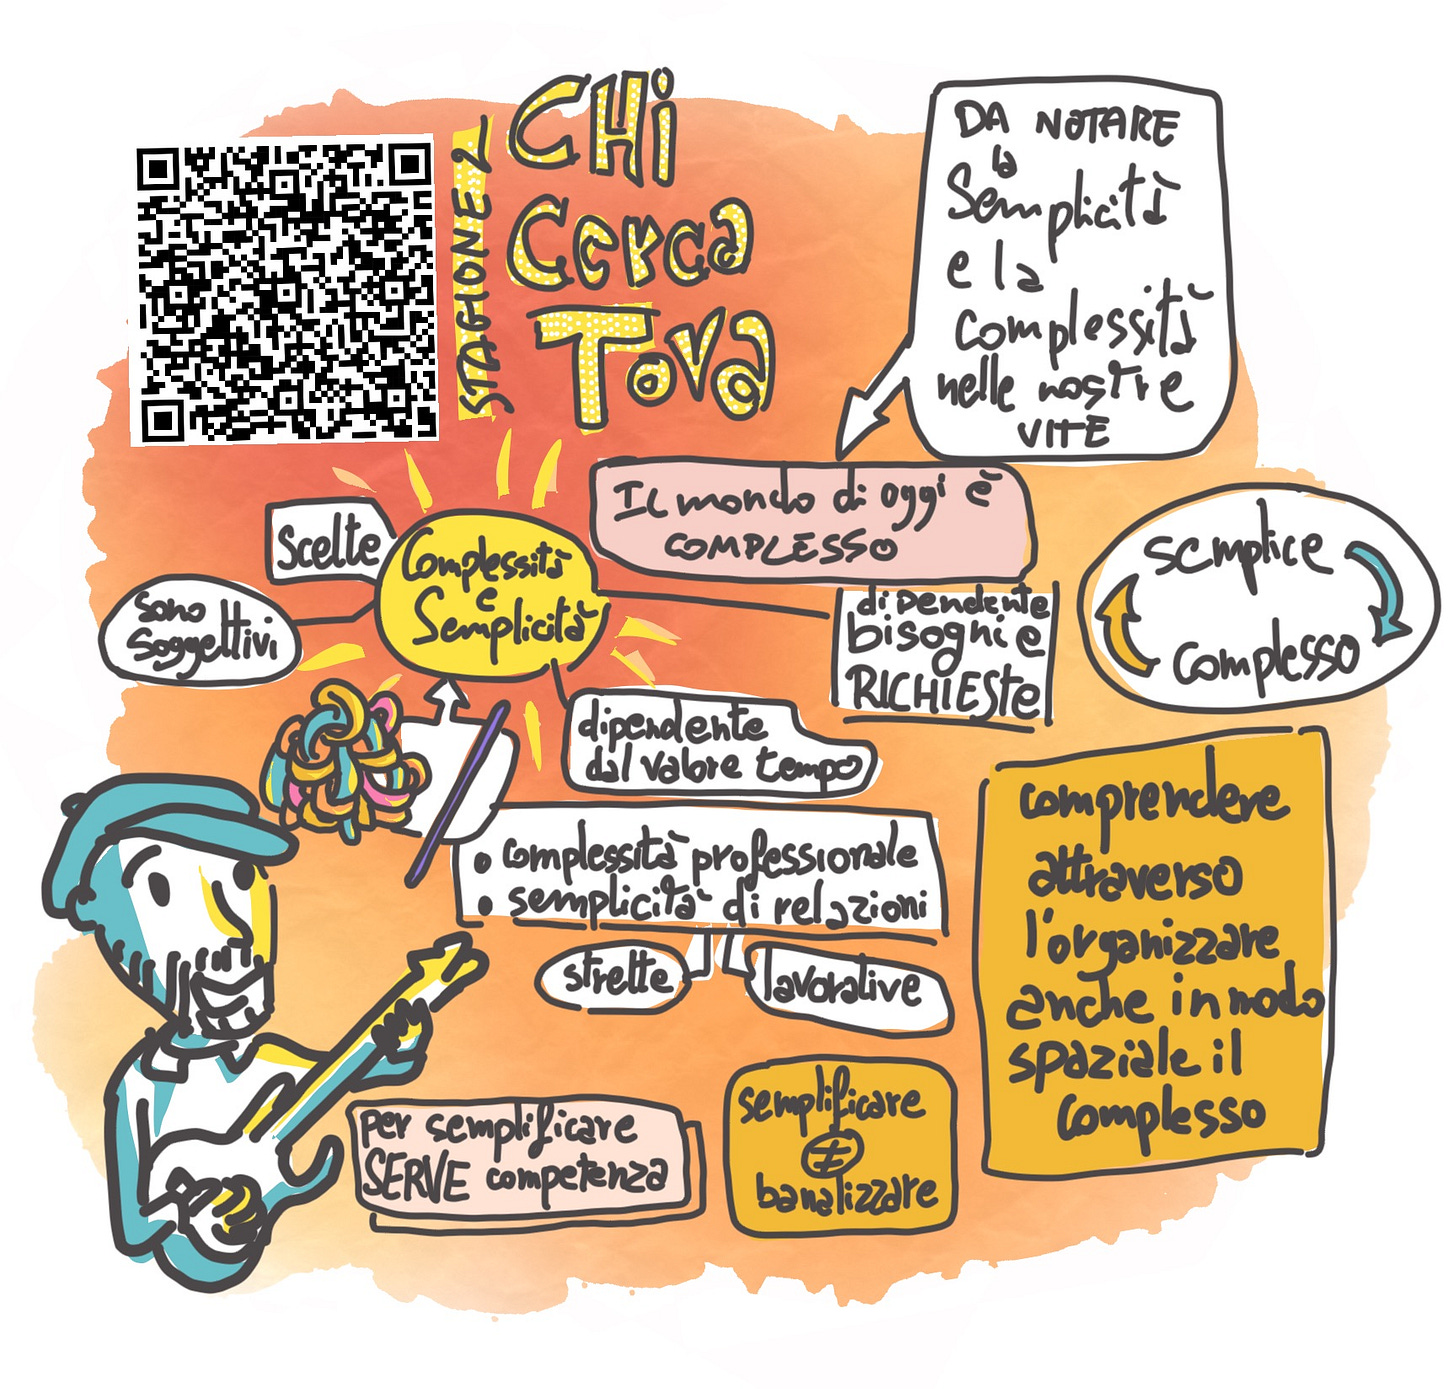 STAGIONE 2
CHi
Cerca
Tova
DA NOTARE
la
Semplicità
e la
complessità
nelle nostre
VITE
IL mondo di oggi è
COMPLESSO
Scelte
Complessità
e
Semplicità
sono
soggettivi
dipendente
bisogni e
RICHIESte
semplice
complesso
dipendente
dal valore tempo
• complessità professionale
• semplicità di relazioni
strette
lavorative
comprendere
attraverso
l'organizzare
anche in modo
spaziale il
complesso
per semplificare
SERVE competenza
semplificare
≠
banalizzare